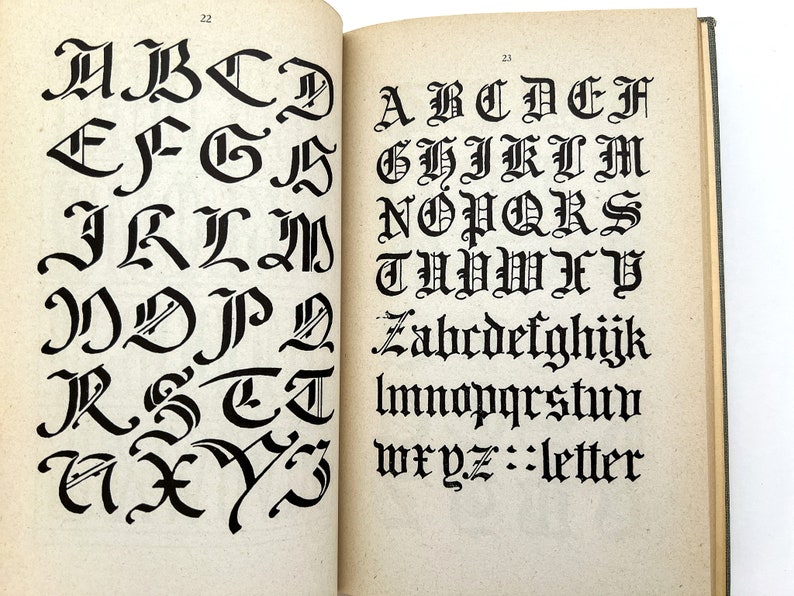 22
A B C D
E F G H
I K L M
N O P Q
R S T T
U X Y Z
23
A B C D E F
G H I K L M
N O P Q R S
T U V W X Y
Z a b c d e f g h i j k
l m n o p q r s t u v
w x y z : : letter